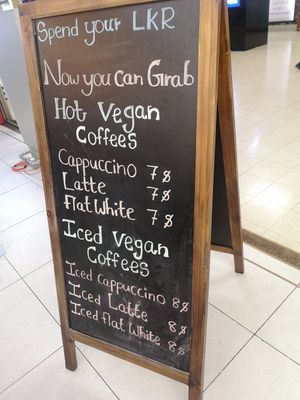 Spend your LKR
Now you can Grab
Hot Vegan
Coffees
Cappuccino 7$
Latte 7$
Flat White 7$
Iced Vegan
Coffees
Iced Cappuccino 8$
Iced Latte 8$
Iced Flat White 8$